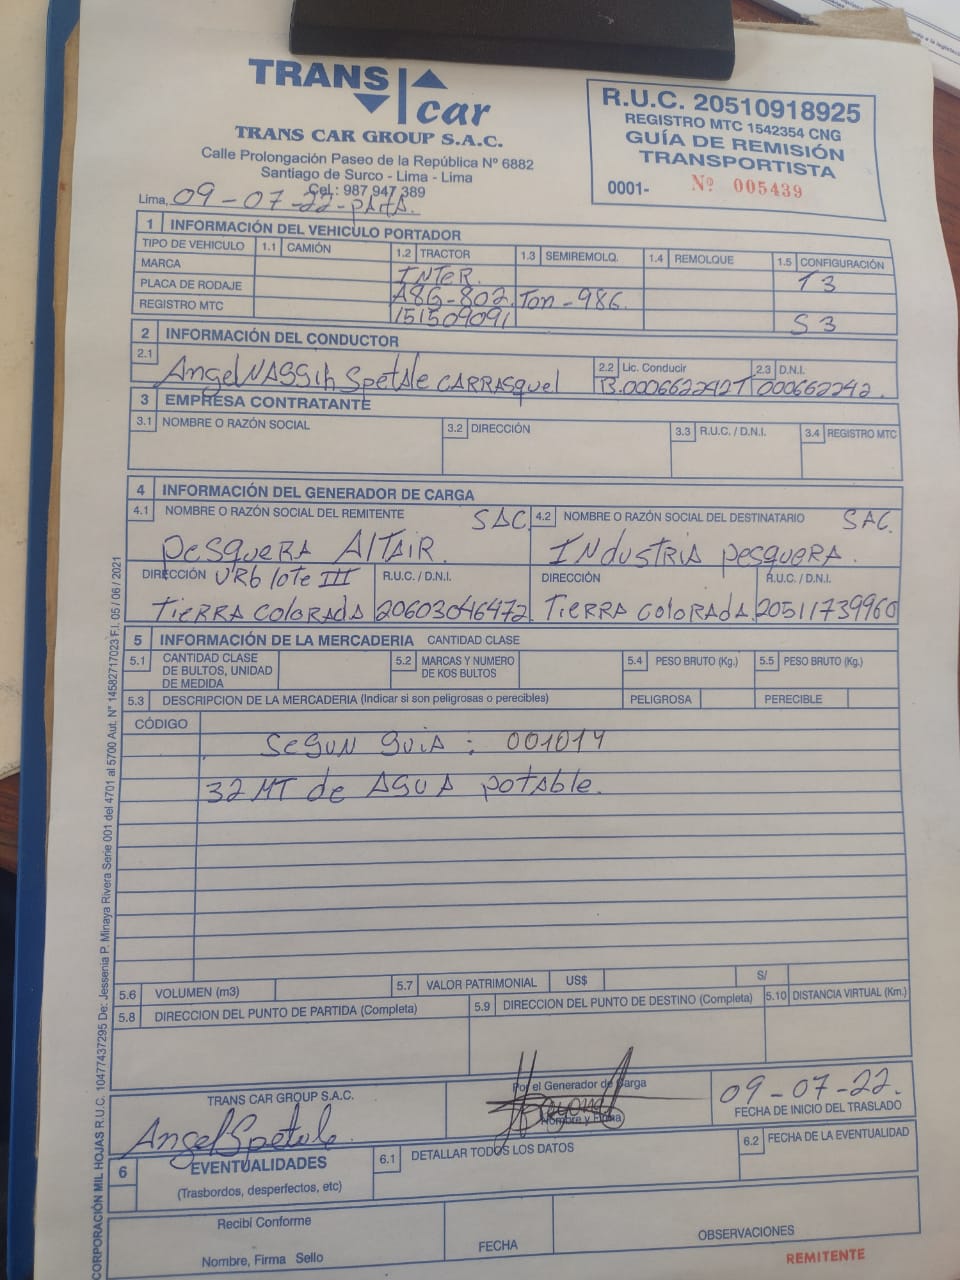 TRANS car
TRANS CAR GROUP S.A.C.
Calle Prolongación Paseo de la República Nº 6882
Santiago de Surco - Lima - Lima
Cel.: 987 947 389
R.U.C. 20510918925
REGISTRO MTC 1542354 CNG
GUÍA DE REMISIÓN
TRANSPORTISTA
0001- Nº 005439
Lima, 09-07-22-
1 INFORMACIÓN DEL VEHICULO PORTADOR
TIPO DE VEHICULO 1.1 CAMIÓN 1.2 TRACTOR 1.3 SEMIREMOLQ. 1.4 REMOLQUE 1.5 CONFIGURACIÓN
MARCA INTER. T3
PLACA DE RODAJE A8G-802. Ton-986.
REGISTRO MTC 151509091 S3
2 INFORMACIÓN DEL CONDUCTOR
2.1 Angel NASSIh Spetale CARRASquel 2.2 Lic. Conducir B.000662242T 2.3 D.N.I. 000662242.
3 EMPRESA CONTRATANTE
3.1 NOMBRE O RAZÓN SOCIAL 3.2 DIRECCIÓN 3.3 R.U.C. / D.N.I. 3.4 REGISTRO MTC
4 INFORMACIÓN DEL GENERADOR DE CARGA
4.1 NOMBRE O RAZÓN SOCIAL DEL REMITENTE SAC 4.2 NOMBRE O RAZÓN SOCIAL DEL DESTINATARIO SAC.
pesquERA AlTAIR. INdustRIA pesqueRA.
DIRECCIÓN URb lote III R.U.C. / D.N.I. DIRECCIÓN R.U.C. / D.N.I.
TiERRA ColoRADA 20603046472 TieRRA ColoRADA. 20511739960
5 INFORMACIÓN DE LA MERCADERIA CANTIDAD CLASE
5.1 CANTIDAD CLASE DE BULTOS, UNIDAD DE MEDIDA 5.2 MARCAS Y NUMERO DE KOS BULTOS 5.4 PESO BRUTO (Kg.) 5.5 PESO BRUTO (Kg.)
5.3 DESCRIPCION DE LA MERCADERIA (Indicar si son peligrosas o perecibles) PELIGROSA PERECIBLE
CÓDIGO
SEGUN GuiA : 001014
32 MT de AGUA potAble.
5.6 VOLUMEN (m3) 5.7 VALOR PATRIMONIAL US$ S/
5.8 DIRECCION DEL PUNTO DE PARTIDA (Completa) 5.9 DIRECCION DEL PUNTO DE DESTINO (Completa) 5.10 DISTANCIA VIRTUAL (Km.)
TRANS CAR GROUP S.A.C. Por el Generador de Carga 09-07-22.
Angel Spetale Nombre y Firma FECHA DE INICIO DEL TRASLADO
6 EVENTUALIDADES 6.1 DETALLAR TODOS LOS DATOS 6.2 FECHA DE LA EVENTUALIDAD
(Trasbordos, desperfectos, etc)
Recibí Conforme
Nombre, Firma Sello FECHA OBSERVACIONES
REMITENTE
CORPORACIÓN MIL HOJAS R.U.C. 10477437295 De: Jessenia P. Minaya Rivera Serie 001 del 4701 al 5700 Aut. Nº 14582717023 F.I. 05 / 06 / 2021